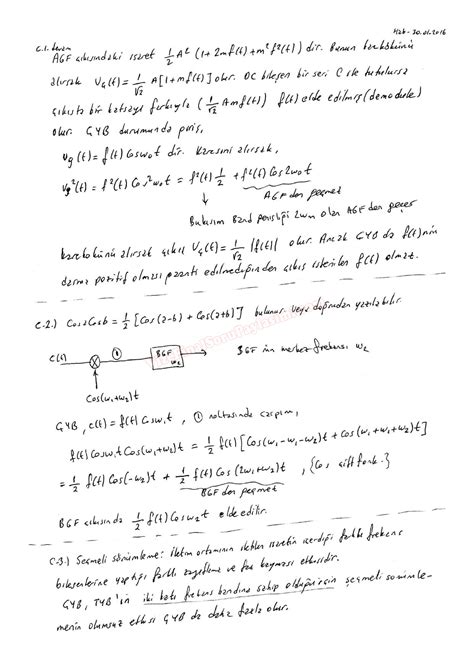 H2b - 30.01.2016
C.1. devam
AGF çıkışındaki işaret 1/2 A² (1 + 2mf(t) + m² f²(t)) dir. Bunun karekökünü
alırsak Vç(t) = 1/√2 A[1 + mf(t)] olur. DC bileşen bir seri C ile tutulursa
çıkışta bir katsayı farkıyla (1/√2 A m f(t)) f(t) elde edilmiş (demodüle)
olur. GYB durumunda giriş,
Vg(t) = f(t) Cosw₀t dir. Karesini alırsak,
Vg²(t) = f²(t) Cos²w₀t = f²(t) 1/2 + f²(t) Cos2w₀t
AGF den geçmez
Bu kısım Band genişliği 2wm olan AGF den geçer
karekökünü alırsak çıkış Vç(t) = 1/√2 |f(t)| olur. Ancak GYB da f(t)'nin
daima pozitif olması garanti edilmediğinden çıkış istenilen f(t) olmaz.
C-2.) CosaCosb = 1/2 [Cos(a-b) + Cos(a+b)] bulunur veya doğrudan yazılabilir.
c(t) ① BGF w₂ BGF nin merkez frekansı w₂
Cos(w₁+w₂)t
GYB, c(t) = f(t) Cosw₁t , ① noktasında çarpım,
f(t) Cosw₁t Cos(w₁+w₂)t = 1/2 f(t) [Cos(w₁-w₁-w₂)t + Cos(w₁+w₁+w₂)t]
= 1/2 f(t) Cos(-w₂)t + 1/2 f(t) Cos(2w₁+w₂)t , {Cos çift fonk.}
BGF den geçmez
BGF çıkışında 1/2 f(t) Cosw₂t elde edilir.
C.3.) Seçmeli sönümleme: İletim ortamının iletilen işaretin içerdiği farklı frekans
bileşenlerine yaptığı farklı zayıflatma ve faz kayması etkisidir.
GYB, TYB'ın iki katı frekans bandına sahip olduğu için seçmeli sönümle-
menin olumsuz etkisi GYB da daha fazla olur.